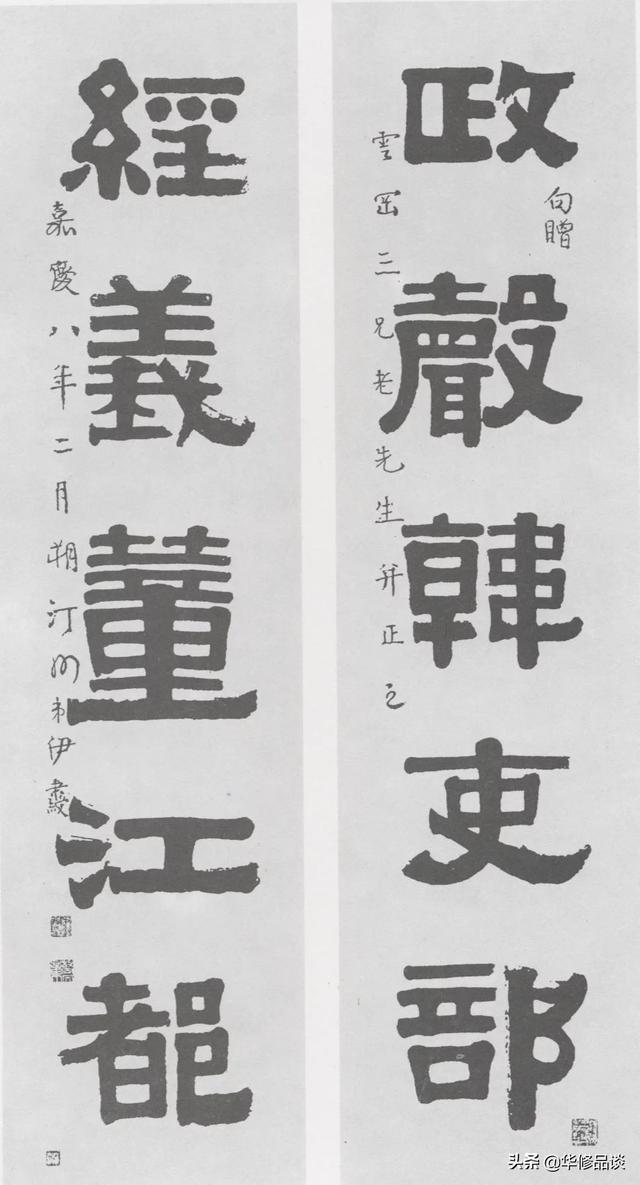 政聲韓吏部
句贈
雲罡三兄老先生并正之
經義董江都
嘉慶八年二月朔汀州弟伊秉綬
头条 @华修品谈